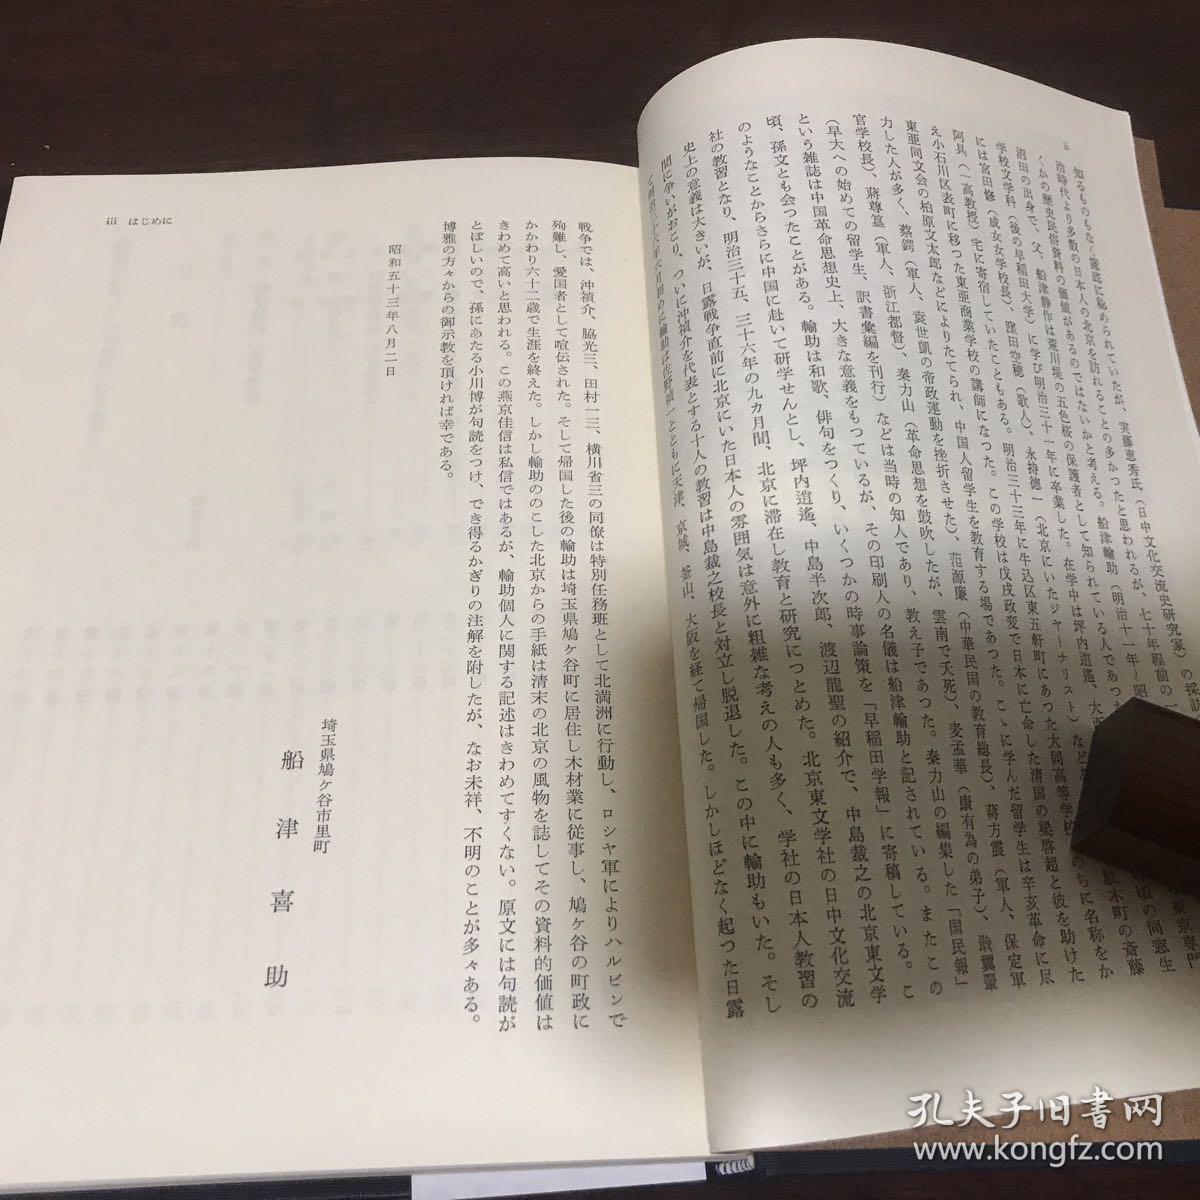 ii
知るものもなく筐底に秘められていたが、実藤恵秀氏（日中文化交流史研究家）の採訪
治時代より多数の日本人の北京を訪れることの多かったと思われるが、七十年程前の一
くかの歴史民俗資料の価値があるのではないかと考える。船津輸助（明治十一年～昭
沼田の出身で、父、船津静作は荒川堤の五色桜の保護者として知られている人であった
学校文学科（後の早稲田大学）に学び明治三十一年に卒業した。在学中は坪内逍遙、大西
には宮田修（成女女学校長）、窪田空穂（歌人）、永持徳一（北京にいたジャーナリスト）など
阿具（一高教授）宅に寄宿していたこともある。明治三十三年に牛込区東五軒町にあった大同高等学校
え小石川区表町に移った東亜商業学校の講師になった。この学校は戊戌政変で日本に亡命した清国の梁啓超と彼を助けた
東亜同文会の柏原文太郎などによりたてられ、中国人留学生を教育する場であった。こゝに学んだ留学生は辛亥革命に尽
力した人が多く、蔡鍔（軍人、袁世凱の帝政運動を挫折させた）、范源廉（中華民国の教育総長）、蔣方震（軍人、保定軍
官学校長）、蔣尊簋（軍人、浙江都督）、秦力山（革命思想を鼓吹したが、雲南で夭死）、麦孟華（康有為の弟子）、戢翼翬
（早大への始めての留学生、訳書彙編を刊行）などは当時の知人であり、教え子であった。秦力山の編集した「国民報」
という雑誌は中国革命思想史上、大きな意義をもつているが、その印刷人の名儀は船津輸助と記されている。またこの
頃、孫文とも会つたことがある。輸助は和歌、俳句をつくり、いくつかの時事論策を「早稲田学報」に寄稿している。こ
のようなことからさらに中国に赴いて研学せんとし、坪内逍遙、中島半次郎、渡辺龍聖の紹介で、中島裁之の北京東文学
社の教習となり、明治三十五、三十六年の九カ月間、北京に滞在し教育と研究につとめた。北京東文学社の日中文化交流
史上の意義は大きいが、日露戦争直前に北京にいた日本人の雰囲気は意外に粗雑な考えの人も多く、学社の日本人教習の
間に争いがおこり、ついに沖禎介を代表とする十人の教習は中島裁之校長と対立し脱退した。この中に輸助もいた。そし
て明治三十六年六月初めに輸助は佐野禎一とともに天津、京城、釜山、大阪を経て帰国した。しかしほどなく起った日露
iii はじめに
戦争では、沖禎介、脇光三、田村一三、横川省三の同僚は特別任務班として北満洲に行動し、ロシヤ軍によりハルビンで
殉難し、愛国者として喧伝された。そして帰国した後の輸助は埼玉県鳩ヶ谷町に居住し木材業に従事し、鳩ヶ谷の町政に
かかわり六十二歳で生涯を終えた。しかし輸助ののこした北京からの手紙は清末の北京の風物を誌してその資料的価値は
きわめて高いと思われる。この燕京佳信は私信ではあるが、輸助個人に関する記述はきわめてすくない。原文には句読が
とぼしいので、孫にあたる小川博が句読をつけ、でき得るかぎりの注解を附したが、なお未祥、不明のことが多々ある。
博雅の方々からの御示教を頂ければ幸である。
昭和五十三年八月二日
埼玉県鳩ヶ谷市里町
船津喜助
孔夫子旧书网
www.kongfz.com